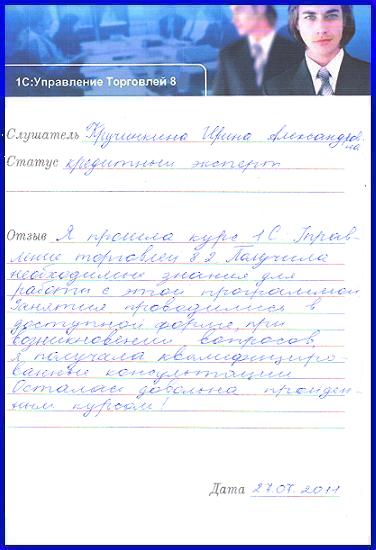 1С:Управление Торговлей 8
Слушатель Кручинкина Ирина Александров-
на
Статус кредитный эксперт
Отзыв Я прошла курс 1С Управ-
ление торговлей 8.2 Получила
необходимые знания для
работы с этой программой
Занятия проводились в
доступной форме, при
возникновении вопросов,
я получала квалифициро-
ванные консультации
Осталась довольна пройден-
ным курсом!
Дата 27.07.2011